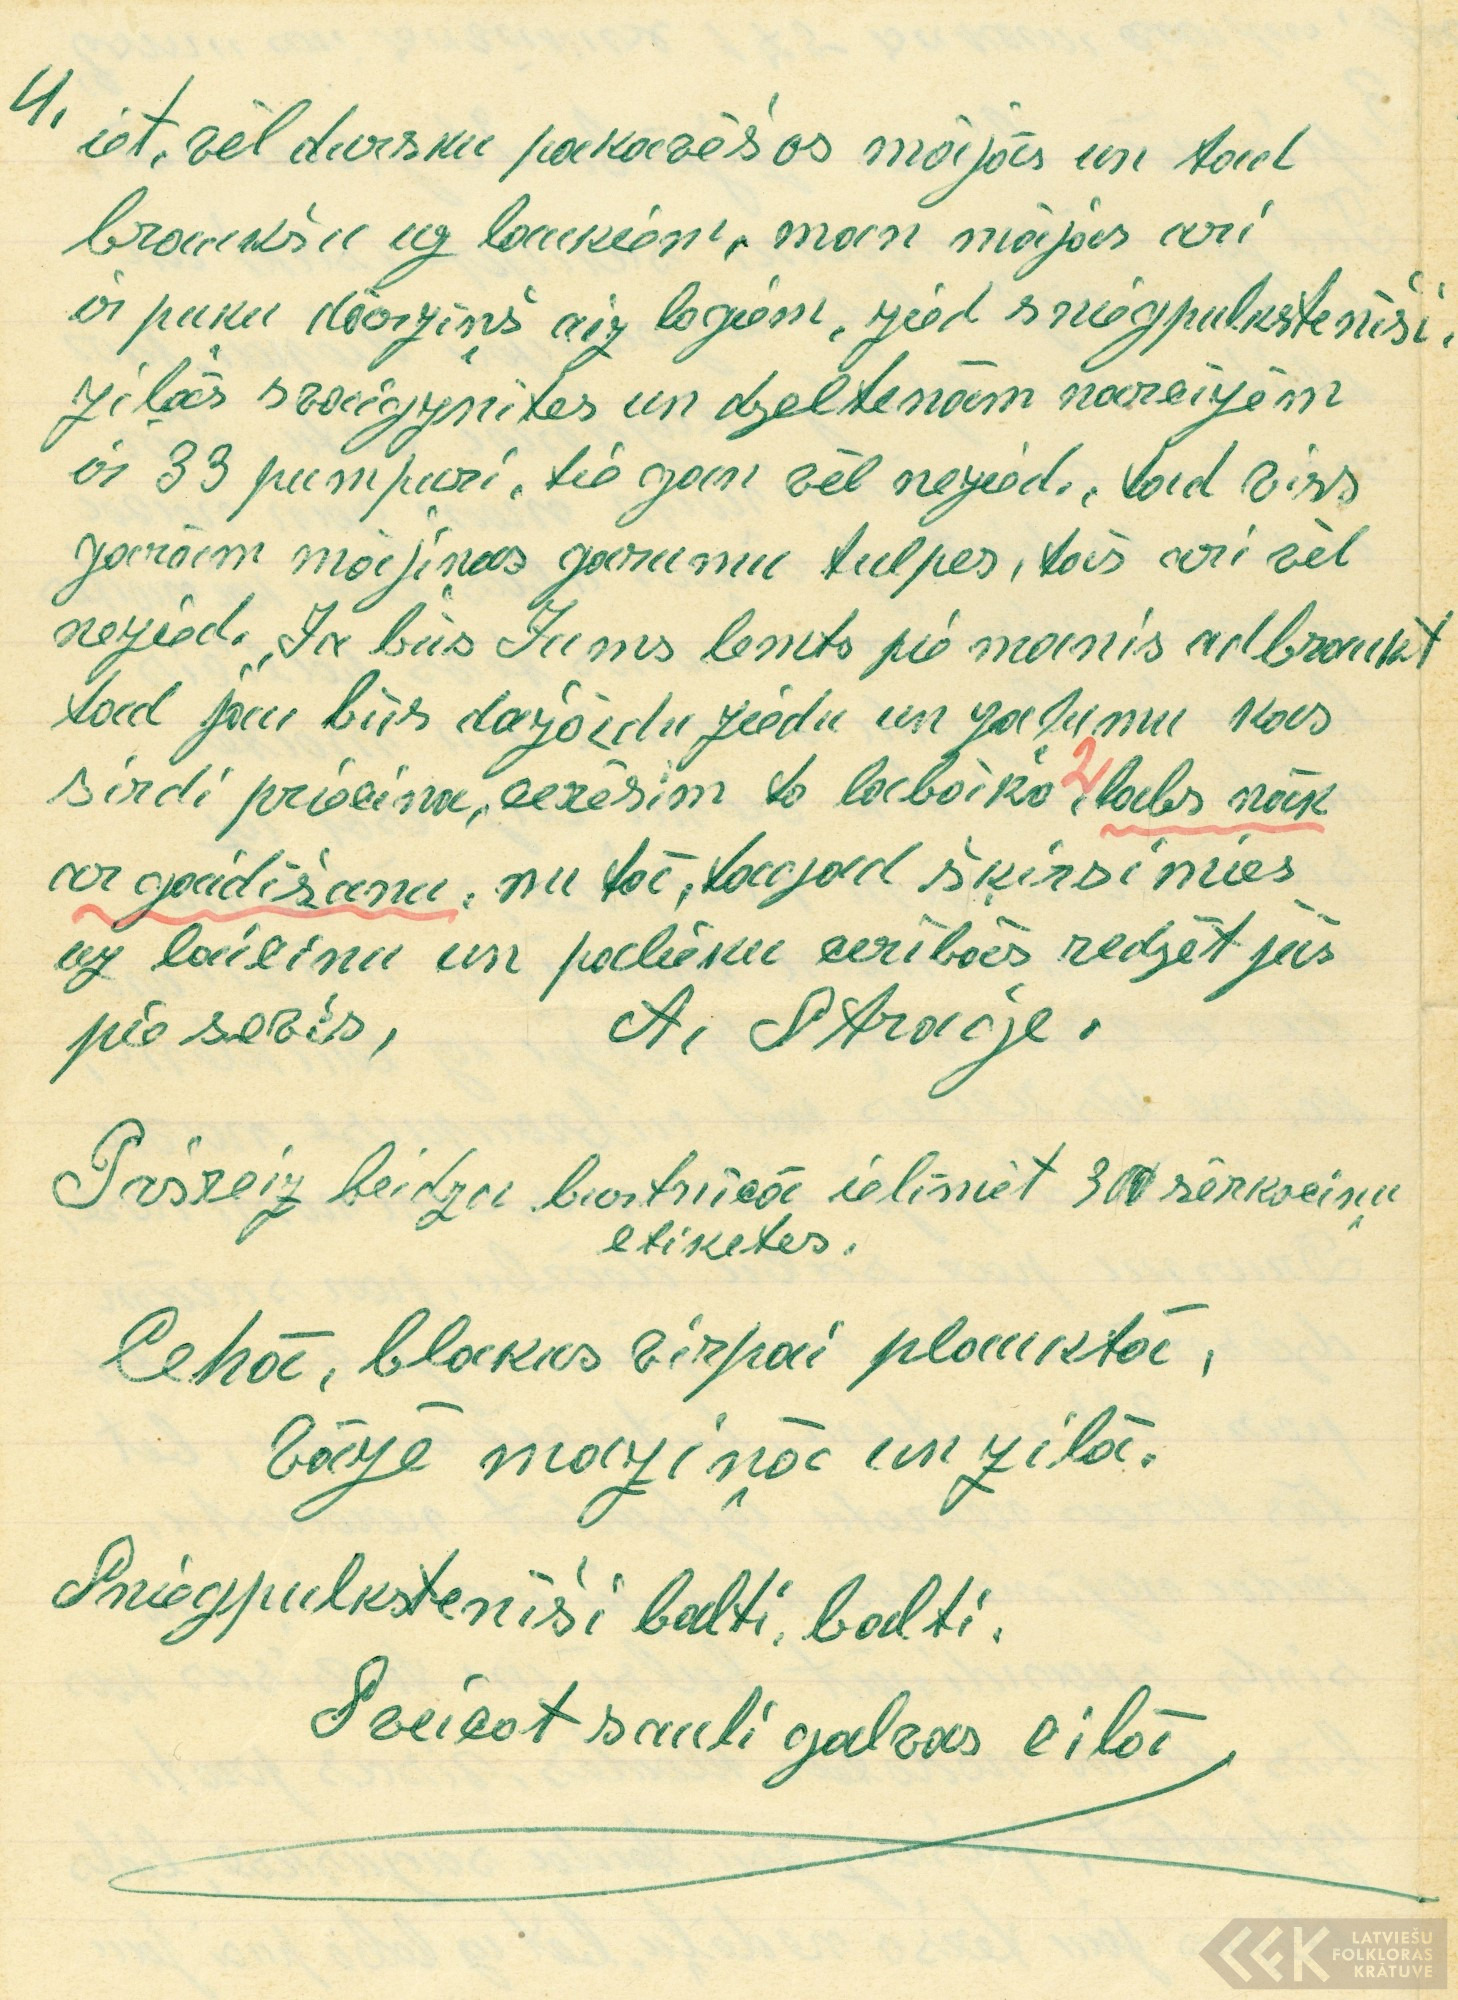 4.
iet, vēl dursku pakavēšos mājās un tad
braukšu uz laukiem, man mājās arī
ir puķu dārziņš aiz logiem, zied sniegpulkstenīši,
zilās svaigznītes un dzeltenām narcizēm
ir 33 pumpuri, tie gan vēl nezied, tad viss
garām mājiņas garumu tulpes, tās arī vēl
nezied. Ja būs Jums lemts pie manis adbraukt
tad jau būs dažādu ziedu un zaļumu kas
sirdi priecina, cerēsim to labāko 2, labs nāk
ar gaidīšanu, nu tā, tagad šķirsimies
uz laiciņu un palieku cerībās redzēt jūs
pie sevis, A, Straije.
Pašreiz beidzu burtnīcā ielīmēt 30 sērkociņu
etiketes.
Cehā, blakus virpai plauktā,
Vāzē maziņā un zilā.
Sniegpulkstenīši balti, balti.
Sveicot sauli galvas cilā
LATVIEŠU
FOLKLORAS
KRĀTUVE